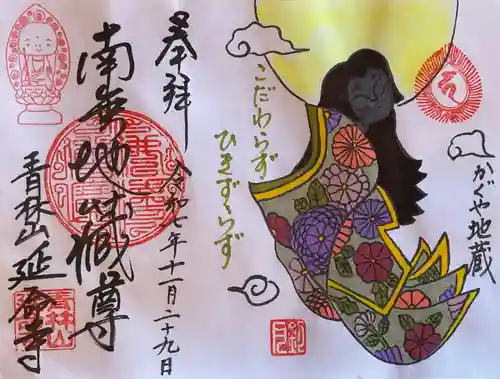 かぐや地蔵
こだわらず
ひきずらず
奉拝
令和七年十一月二十九日
南無地蔵尊
青林山延命寺